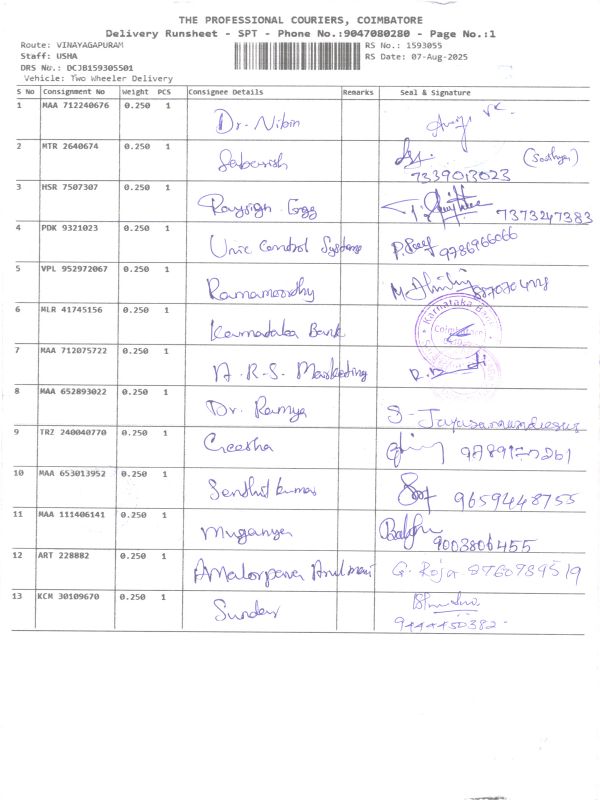 THE PROFESSIONAL COURIERS, COIMBATORE
Delivery Runsheet - SPT - Phone No.:9047080280 - Page No.:1
Route: VINAYAGAPURAM RS No.: 1593055
Staff: USHA RS Date: 07-Aug-2025
DRS No.: DCJB159305501
Vehicle: Two Wheeler Delivery
S No Consignment No Weight PCS Consignee Details Remarks Seal & Signature
1 MAA 712240676 0.250 1 Dr. Nibin
2 MTR 2640674 0.250 1 Sabarish (Sathya)
7339013023
3 HSR 7507307 0.250 1 Raysign Engg 7373247383
4 PDK 9321023 0.250 1 Unic Control Systems 9786966066
5 VPL 952972067 0.250 1 Ramamoorthy
6 MLR 41745156 0.250 1 Karnataka Bank Karnataka Bank Coimbatore
7 MAA 712075722 0.250 1 A.R.S. Marketing
8 MAA 652893022 0.250 1 Dr. Ramya
9 TRZ 240040770 0.250 1 Creesha
10 MAA 653013952 0.250 1 Senthil kumar 9659448755
11 MAA 111406141 0.250 1 Muganya 9003806455
12 ART 228882 0.250 1 G. Roja 8760789519
13 KCM 30109670 0.250 1 Sunder
9444450382